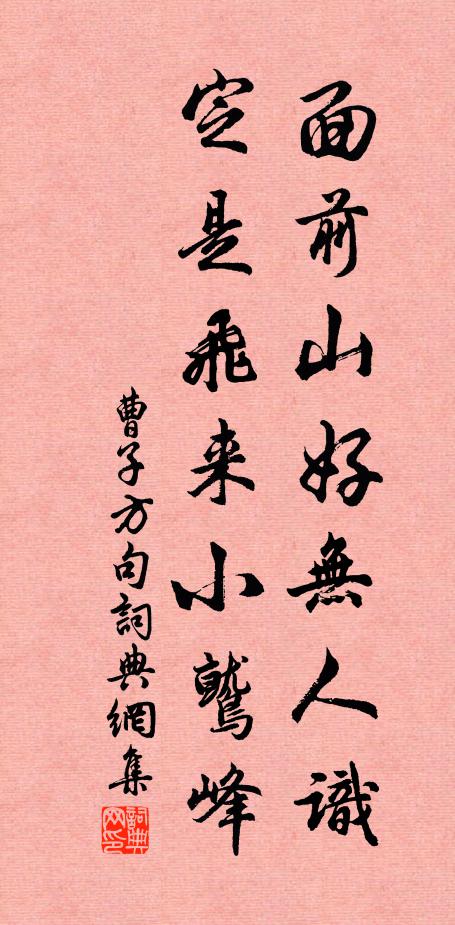 面前山好無人識
定是飛来小鷲峰
曹子方句詞典網集
詞典网印